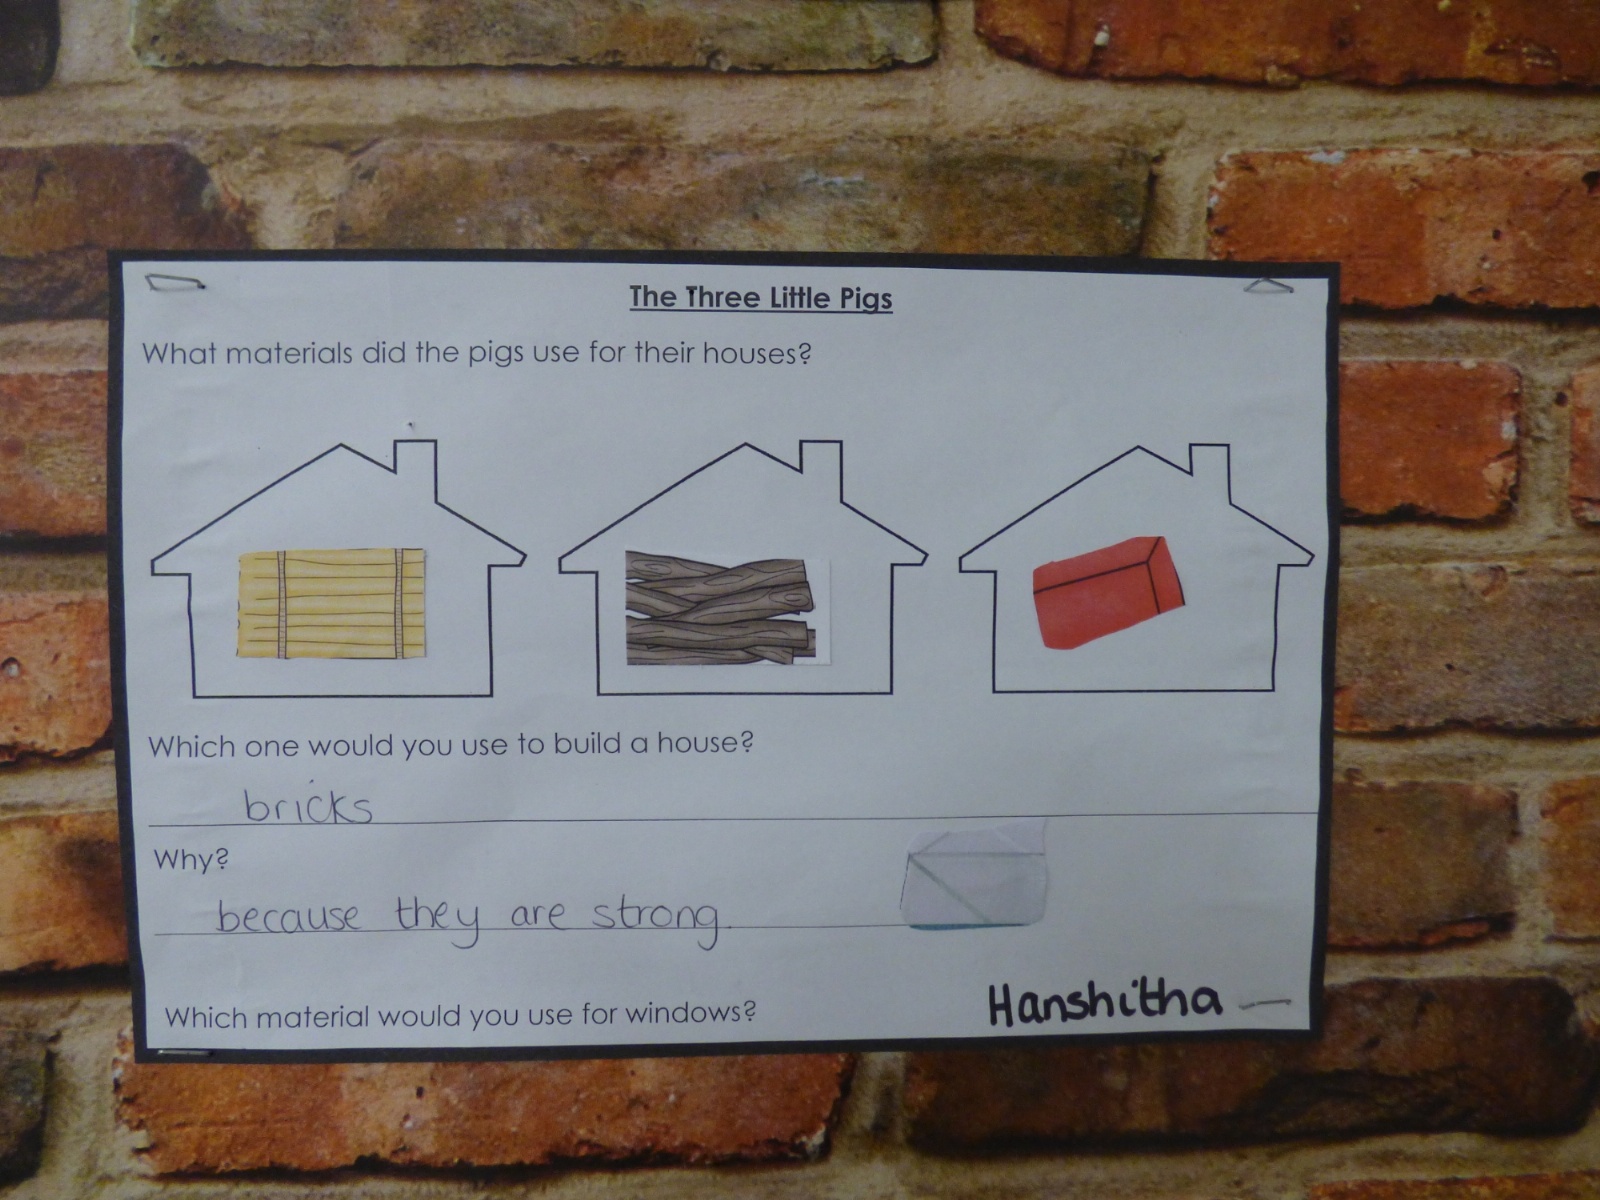 The Three Little Pigs
What materials did the pigs use for their houses?
Which one would you use to build a house?
bricks
Why?
because they are strong.
Which material would you use for windows?
Hanshitha